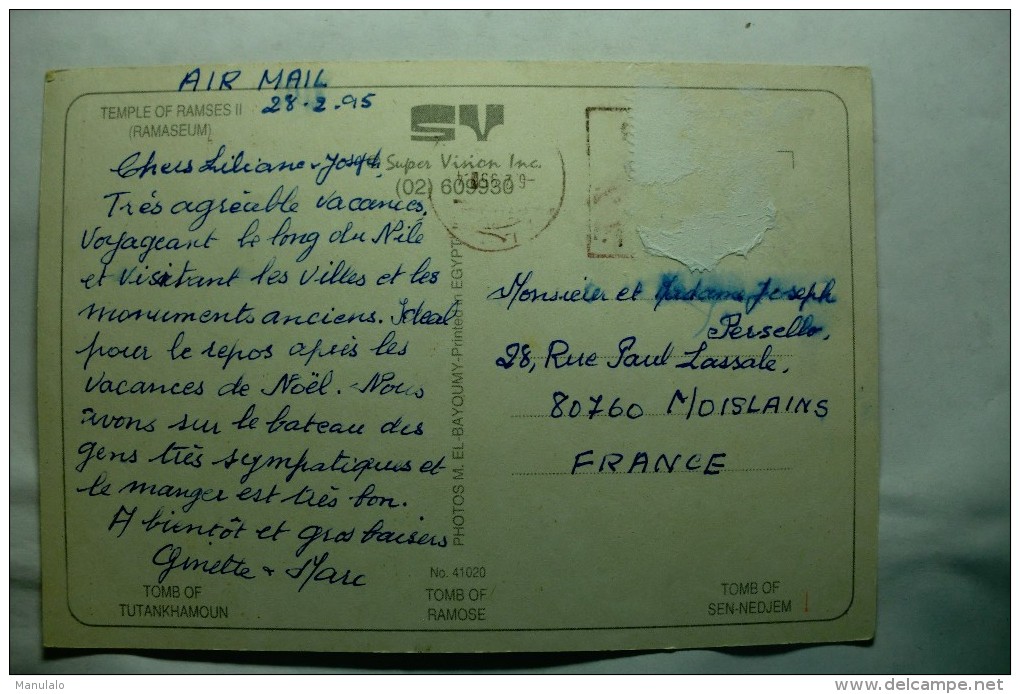 AIR MAIL
28.2.95
TEMPLE OF RAMSES II
(RAMASEUM)
SV
Super Vision Inc.
(02) 609930
Chers Liliane + Joseph.
Très agréable vacances,
voyageant le long du Nile
et visitant les villes et les
monuments anciens. Idéal
pour le repos après les
vacances de Noël. Nous
avons sur le bateau des
gens très sympatiques et
le manger est très bon.
A bientôt et gros baisers
Ginette + Marc
PHOTOS M. EL-BAYOUMY-Printed in EGYPT
Monsieur et Madame Joseph
Persello,
28, Rue Paul Lassale,
80760 MOISLAINS
FRANCE
No. 41020
TOMB OF
TUTANKHAMOUN
TOMB OF
RAMOSE
TOMB OF
SEN-NEDJEM
Manulalo
delcampe.net